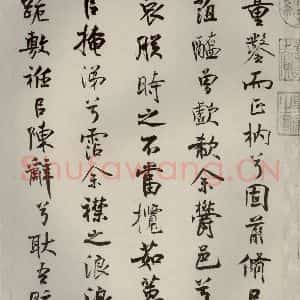 量鑿而正枘兮固前脩以
菹醢曾歔欷余鬱邑兮
哀朕時之不當攬茹蕙
以掩涕兮霑余襟之浪浪
跪敷衽以陳辭兮耿吾既
Shufawang.CN